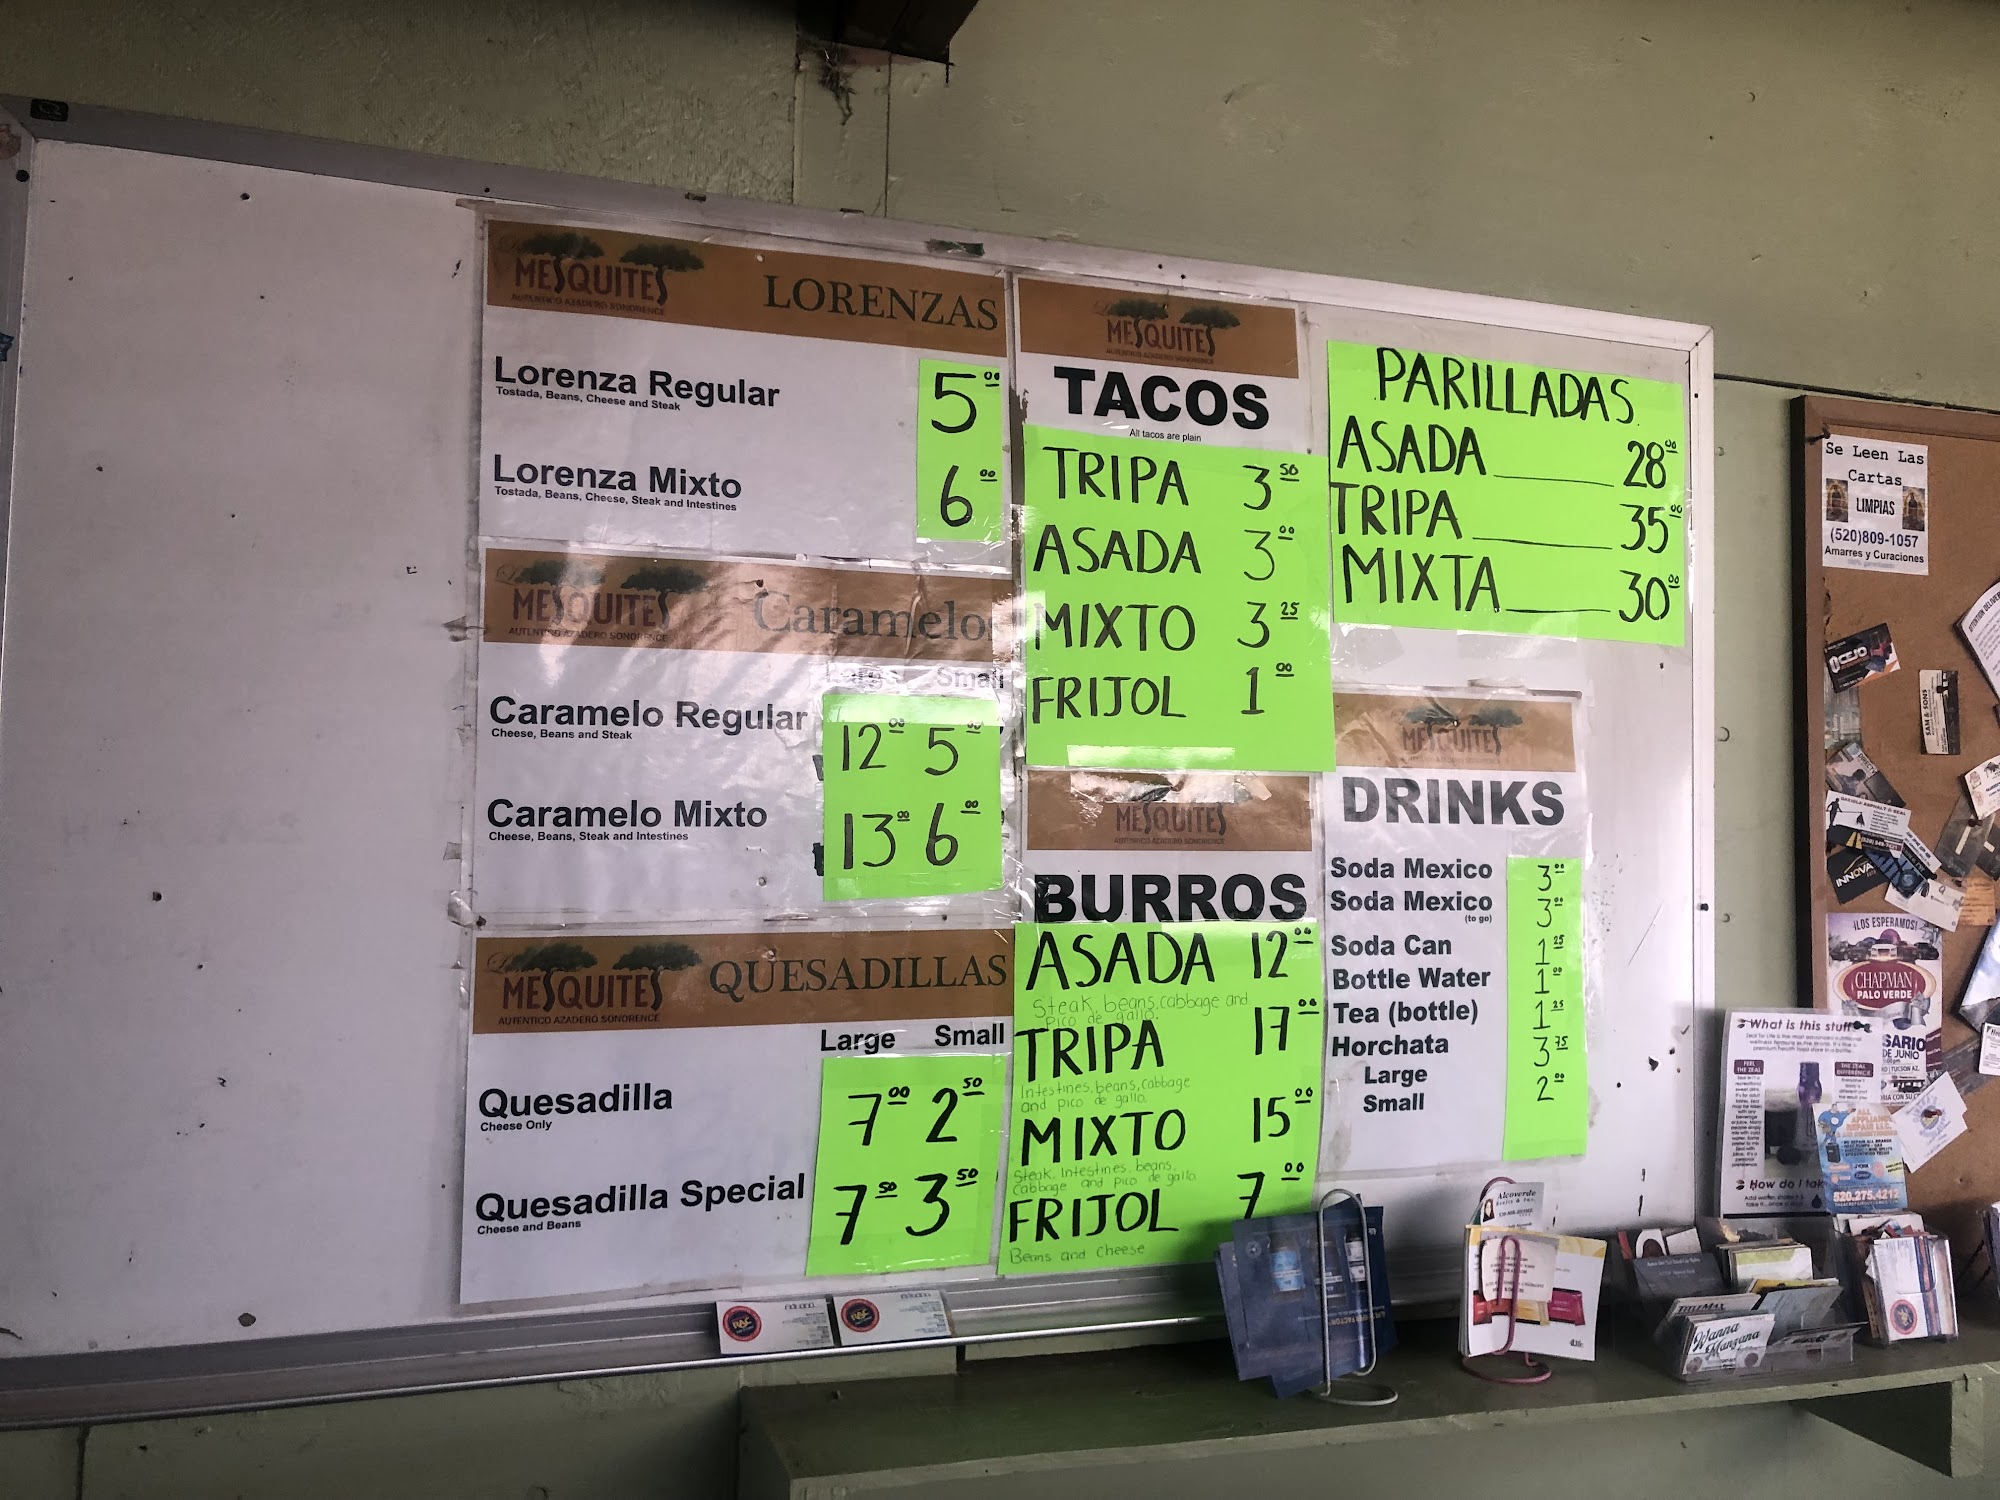 MESQUITES
AUTENTICO AZADERO SONORENCE
LORENZAS
Lorenza Regular 5.00
Tostada, Beans, Cheese and Steak
Lorenza Mixto 6.00
Tostada, Beans, Cheese, Steak and Intestines
MESQUITES
AUTENTICO AZADERO SONORENCE
Caramelos
Large Small
Caramelo Regular 12.00 5.00
Cheese, Beans and Steak
Caramelo Mixto 13.00 6.00
Cheese, Beans, Steak and Intestines
MESQUITES
AUTENTICO AZADERO SONORENCE
QUESADILLAS
Large Small
Quesadilla 7.00 2.50
Cheese Only
Quesadilla Special 7.50 3.50
Cheese and Beans
MESQUITES
AUTENTICO AZADERO SONORENCE
TACOS
All tacos are plain
TRIPA 3.50
ASADA 3.00
MIXTO 3.25
FRIJOL 1.00
MESQUITES
AUTENTICO AZADERO SONORENCE
BURROS
ASADA 12.00
Steak, beans, cabbage and
pico de gallo.
TRIPA 17.00
Intestines, beans, cabbage
and pico de gallo.
MIXTO 15.00
Steak, Intestines, beans,
cabbage and pico de gallo.
FRIJOL 7.00
Beans and cheese
PARILLADAS
ASADA 28.00
TRIPA 35.00
MIXTA 30.00
MESQUITES
AUTENTICO AZADERO SONORENCE
DRINKS
Soda Mexico 3.00
Soda Mexico 3.00
(to go)
Soda Can 1.25
Bottle Water 1.00
Tea (bottle) 1.25
Horchata 3.75
Large 2.00
Small
Se Leen Las
Cartas
LIMPIAS
(520)809-1057
Amarres y Curaciones
OCEJO
SAM & SONS
INNOVA
¡LOS ESPERAMOS!
CHAPMAN
PALO VERDE
SARIO
DE JUNIO
TUCSON AZ.
What is this stuff
FEEL
THE ZEAL
THE ZEAL
DIFFERENCE
How do I tak
ALL
APPLIANCE
REPAIR LLC.
520.275.4212
Alcoverde
TITLEMAX
Wanna
Manzana